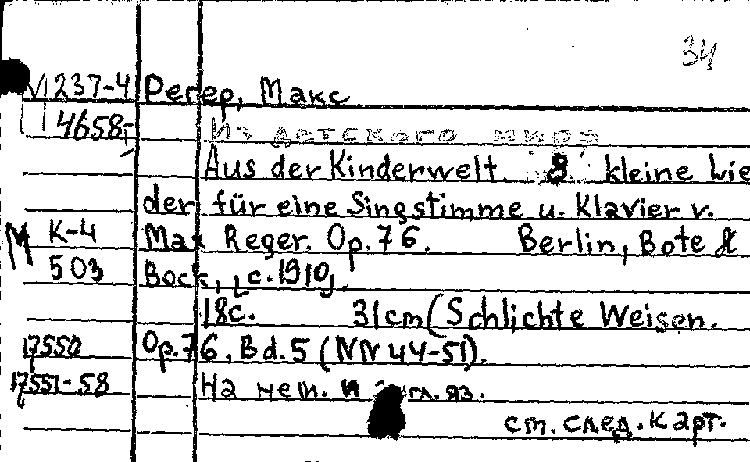 34
237-4 Регер, Макс
4658- Из детского мира
Aus der Kinderwelt. 8 kleine Lie
der für eine Singstimme u. Klavier v.
М К-4 Max Reger. Op.76. Berlin, Bote &
503 Bock, [c.1910].
18с. 31cm (Schlichte Weisen.
17550 Op.76, Bd.5 (NN 44-51).
17551-58 На нем. и англ. яз.
см. след. карт.